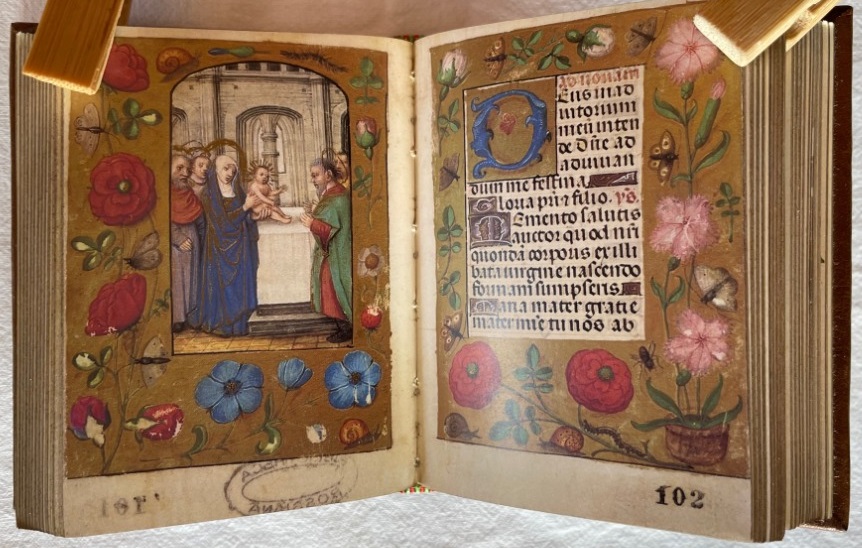 ad nonam
Deus in ad
iutorium
meū inten
de Dñe ad
adiuuan
dum me festina
Gloria pr̄i & filio. ys.
Memento salutis
auctor quod nr̄i
quondā corporis ex illi
bata uirgine nascendo
formam sumpseris
Maria mater gratie
mater mīe tu nos ab
101
102